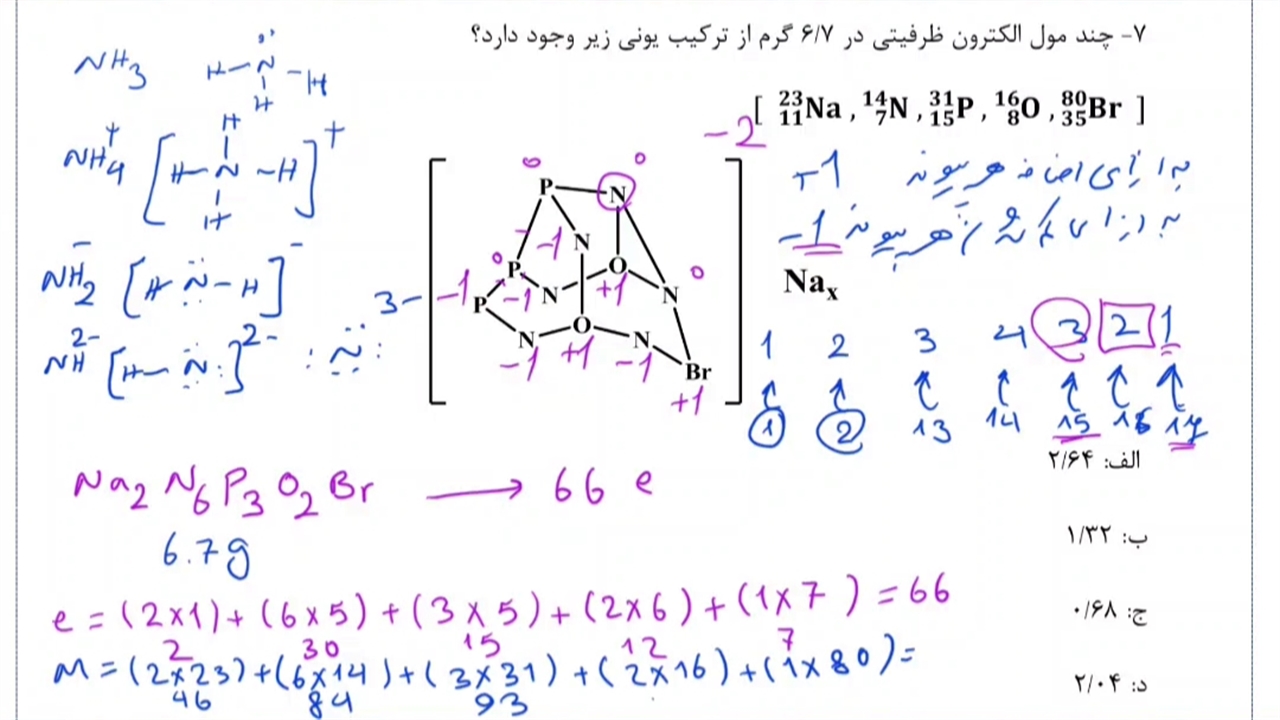 ۷- چند مول الکترون ظرفیتی در ۶/۷ گرم از ترکیب یونی زیر وجود دارد؟
[ ²³₁₁Na , ¹⁴₇N , ³¹₁₅P , ¹⁶₈O , ⁸⁰₃₅Br ]
NH₃ H-N-H
H
NH₄⁺ [H-N-H]⁺
H
H
NH₂⁻ [H-N-H]⁻
NH²⁻ [H-N:]²⁻ :N: 3-
-2
0 0
P N
-1 N
0 P -1 N O +1 N 0
-1 P
N O N
-1 +1 -1 Br
+1
+1 به ازای اضافه هر پیوند
-1 به ازای کم هر پیوند
Naₓ
1 2 3 4 3 2 1
1 2 13 14 15 16 17
الف: ۲/۶۴
ب: ۱/۳۲
ج: ۰/۶۸
د: ۲/۰۴
Na₂ N₆ P₃ O₂ Br → 66 e
6.7g
e = (2×1) + (6×5) + (3×5) + (2×6) + (1×7) = 66
2 30 15 12 7
M = (2×23) + (6×14) + (3×31) + (2×16) + (1×80) =
46 84 93